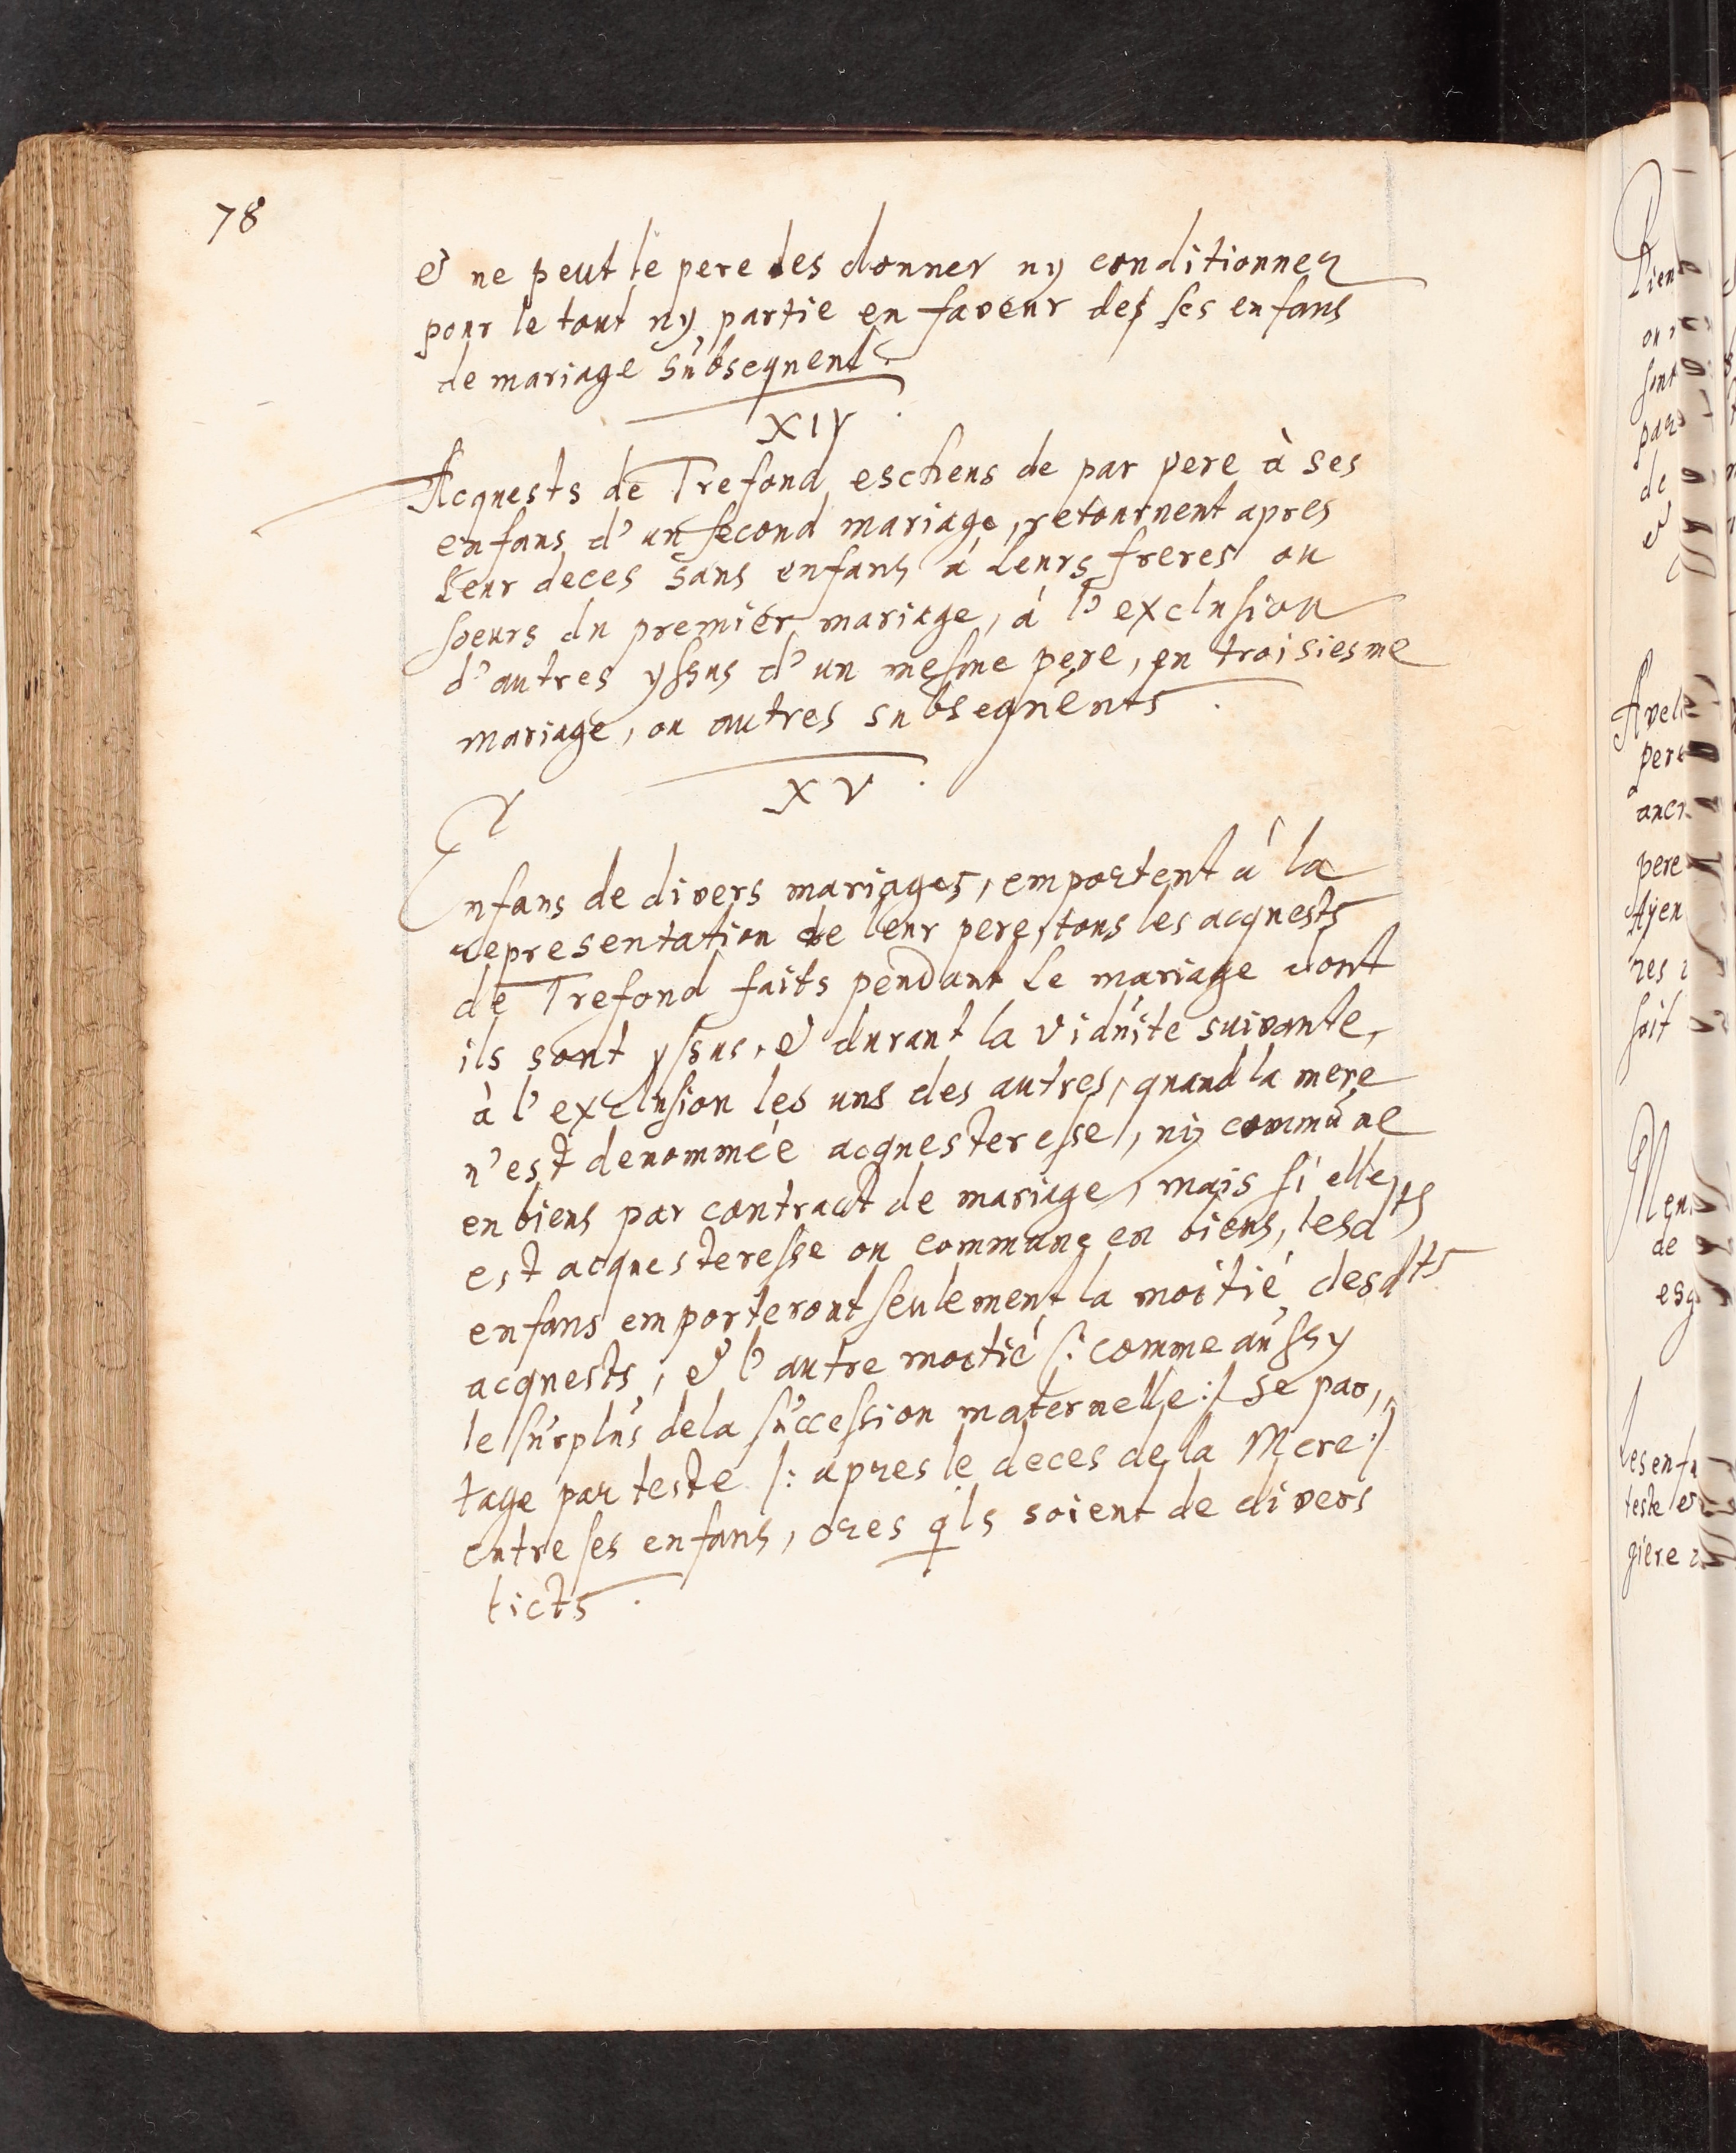 78
& ne peut le pere les donner ny conditionner
pour le tout ny partie en faveur des ses enfans
de mariage subsequent.
XIV.
Acquests de Trefond escheus de par pere à ses
enfans d'un second mariage, retournent apres
leur deces sans enfans à leurs freres ou
soeurs du premier mariage, à l'exclusion
d'autres yssus d'un mesme pere, en troisiesme
mariage, ou autres subsequents.
XV.
Enfans de divers mariages, emportent à la
representation de leur pere, tous les acquests
de Trefond faits pendant le mariage dont
ils sont yssus, & durant la viduite suivante,
à l'exclusion les uns des autres, quand la mere
n'est denommée acquesteresse, ny commune
en biens par contract de mariage, mais si elle
est acquesteresse ou commune en biens, lesdts
enfans emporteront seulement la moitié desdts
acquests, & l'autre moitié /: comme aussy
le surplus de la succession maternelle :/ se par,,
tage par teste /: apres le deces de la Mere :/
entre ses enfans, ores qls soient de divers
licts.
Rien
sont
par
de
&
Avel
pere
pere
res
soit
de
Les enfa
teste